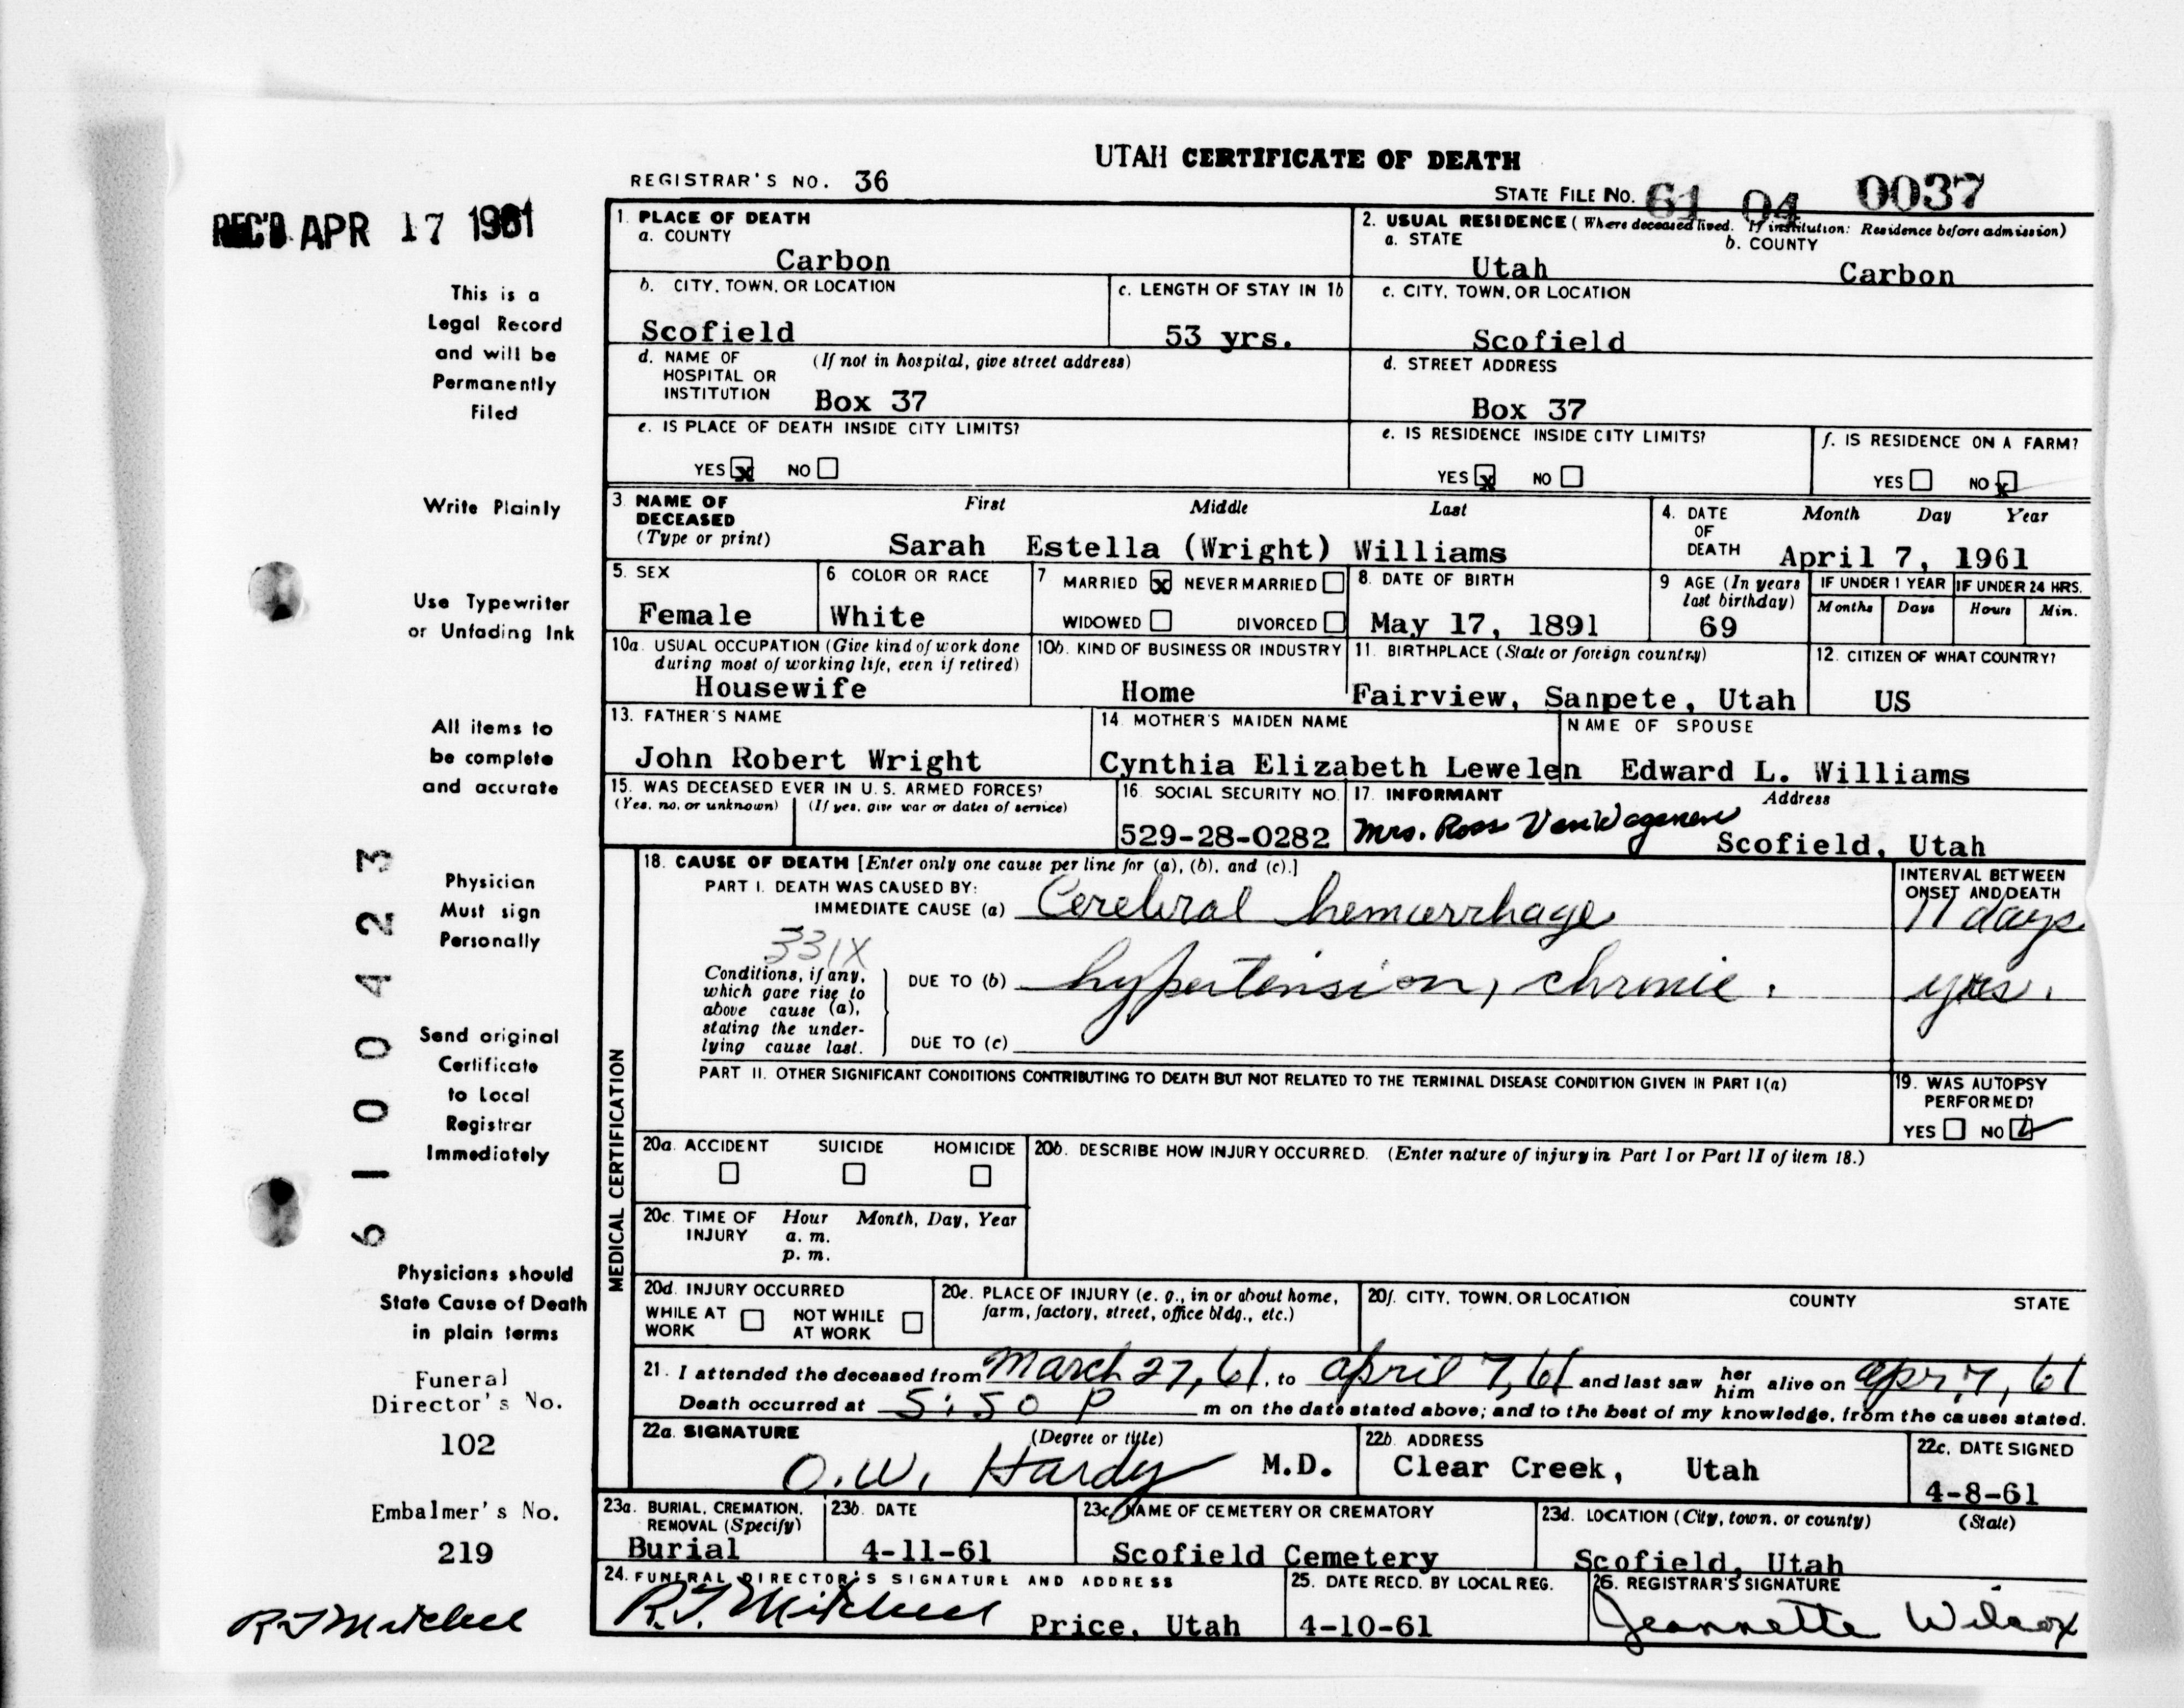 UTAH CERTIFICATE OF DEATH
REGISTRAR'S NO. 36
STATE FILE NO. 61 04 0037
REC'D APR 17 1961
This is a
Legal Record
and will be
Permanently
Filed
Write Plainly
Use Typewriter
or Unfading Ink
All items to
be complete
and accurate
Physician
Must sign
Personally
Send original
Certificate
to Local
Registrar
Immediately
Physicians should
State Cause of Death
in plain terms
Funeral
Director's No.
102
Embalmer's No.
219
R J Mitchell
61004 23
1. PLACE OF DEATH
a. COUNTY
Carbon
2. USUAL RESIDENCE (Where deceased lived. If institution: Residence before admission)
a. STATE b. COUNTY
Utah Carbon
b. CITY, TOWN, OR LOCATION
Scofield
c. LENGTH OF STAY IN 1b
53 yrs.
c. CITY, TOWN, OR LOCATION
Scofield
d. NAME OF (If not in hospital, give street address)
HOSPITAL OR
INSTITUTION Box 37
d. STREET ADDRESS
Box 37
e. IS PLACE OF DEATH INSIDE CITY LIMITS?
YES x NO
e. IS RESIDENCE INSIDE CITY LIMITS?
YES x NO
f. IS RESIDENCE ON A FARM?
YES NO x
3. NAME OF First Middle Last
DECEASED
(Type or print) Sarah Estella (Wright) Williams
4. DATE Month Day Year
OF
DEATH April 7, 1961
5. SEX
Female
6 COLOR OR RACE
White
7 MARRIED x NEVER MARRIED
WIDOWED DIVORCED
8. DATE OF BIRTH
May 17, 1891
9 AGE (In years
last birthday)
69
IF UNDER 1 YEAR IF UNDER 24 HRS.
Months Days Hours Min.
10a. USUAL OCCUPATION (Give kind of work done
during most of working life, even if retired)
Housewife
10b. KIND OF BUSINESS OR INDUSTRY
Home
11. BIRTHPLACE (State or foreign country)
Fairview, Sanpete, Utah
12. CITIZEN OF WHAT COUNTRY?
US
13. FATHER'S NAME
John Robert Wright
14. MOTHER'S MAIDEN NAME
Cynthia Elizabeth Lewelen
NAME OF SPOUSE
Edward L. Williams
15. WAS DECEASED EVER IN U. S. ARMED FORCES?
(Yes, no, or unknown) (If yes, give war or dates of service)
16. SOCIAL SECURITY NO.
529-28-0282
17. INFORMANT Address
Mrs. Ross VanWagenen
Scofield, Utah
MEDICAL CERTIFICATION
18. CAUSE OF DEATH [Enter only one cause per line for (a), (b), and (c).]
PART I. DEATH WAS CAUSED BY:
IMMEDIATE CAUSE (a) Cerebral hemorrhage
INTERVAL BETWEEN
ONSET AND DEATH
11 days
331X
Conditions, if any,
which gave rise to
above cause (a),
stating the under-
lying cause last.
DUE TO (b) hypertension, chronic. yrs.
DUE TO (c)
PART II. OTHER SIGNIFICANT CONDITIONS CONTRIBUTING TO DEATH BUT NOT RELATED TO THE TERMINAL DISEASE CONDITION GIVEN IN PART I(a)
19. WAS AUTOPSY
PERFORMED?
YES NO ✓
20a. ACCIDENT SUICIDE HOMICIDE
20b. DESCRIBE HOW INJURY OCCURRED. (Enter nature of injury in Part I or Part II of item 18.)
20c. TIME OF Hour Month, Day, Year
INJURY a. m.
p. m.
20d. INJURY OCCURRED
WHILE AT NOT WHILE
WORK AT WORK
20e. PLACE OF INJURY (e. g., in or about home,
farm, factory, street, office bldg., etc.)
20f. CITY, TOWN, OR LOCATION COUNTY STATE
21. I attended the deceased from March 27, 61, to April 7, 61 and last saw her him alive on Apr. 7, 61
Death occurred at 5:50 P m on the date stated above; and to the best of my knowledge, from the causes stated.
22a. SIGNATURE (Degree or title)
O. W. Hardy M.D.
22b. ADDRESS
Clear Creek, Utah
22c. DATE SIGNED
4-8-61
23a. BURIAL, CREMATION,
REMOVAL (Specify)
Burial
23b. DATE
4-11-61
23c. NAME OF CEMETERY OR CREMATORY
Scofield Cemetery
23d. LOCATION (City, town, or county) (State)
Scofield, Utah
24. FUNERAL DIRECTOR'S SIGNATURE AND ADDRESS
R. J. Mitchell Price, Utah
25. DATE RECD. BY LOCAL REG.
4-10-61
26. REGISTRAR'S SIGNATURE
Jeannette Wilcox